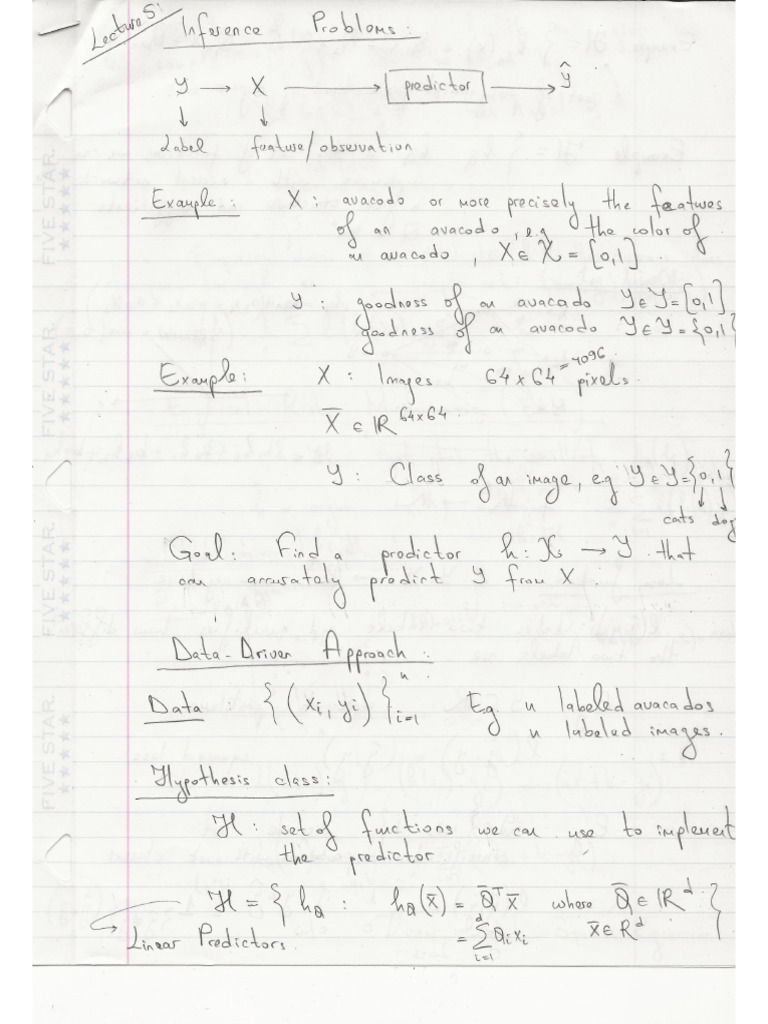 Lecture 5:
Inference Problems:
Y → X → predictor → ŷ
Label feature/observation
Example: X : avacodo or more precisely the features
of an avacodo, e.g the color of
an avacodo, X ∈ 𝒳 = [0,1].
Y : goodness of an avacado Y ∈ 𝒴 = [0,1]
goodness of an avacodo Y ∈ 𝒴 = {0,1}
Example: X : Images 64 x 64 = 4096 pixels.
X̄ ∈ ℝ^{64x64}.
Y : Class of an image, e.g Y ∈ 𝒴 = {0,1}
cats dog
Goal: Find a predictor h: 𝒳 → 𝒴 that
can accurately predict Y from X.
Data-Driven Approach:
Data : {(xi, yi)}_{i=1}^{n} Eg. n labeled avacados
n labeled images.
Hypothesis class:
ℋ : set of functions we can use to implement
the predictor
ℋ = { h_θ : h_θ(x̄) = θ̄^T x̄ where θ̄ ∈ ℝ^d }
= Σ_{i=1}^{d} θ_i x_i x̄ ∈ R^d
Linear Predictors.
FIVE STAR.
FIVE STAR.
FIVE STAR.
FIVE STAR.